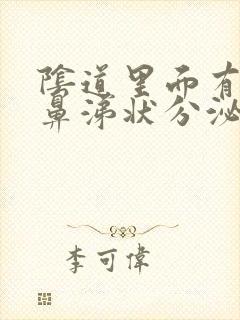 陰道里面有
鼻涕狀分泌
李可偉